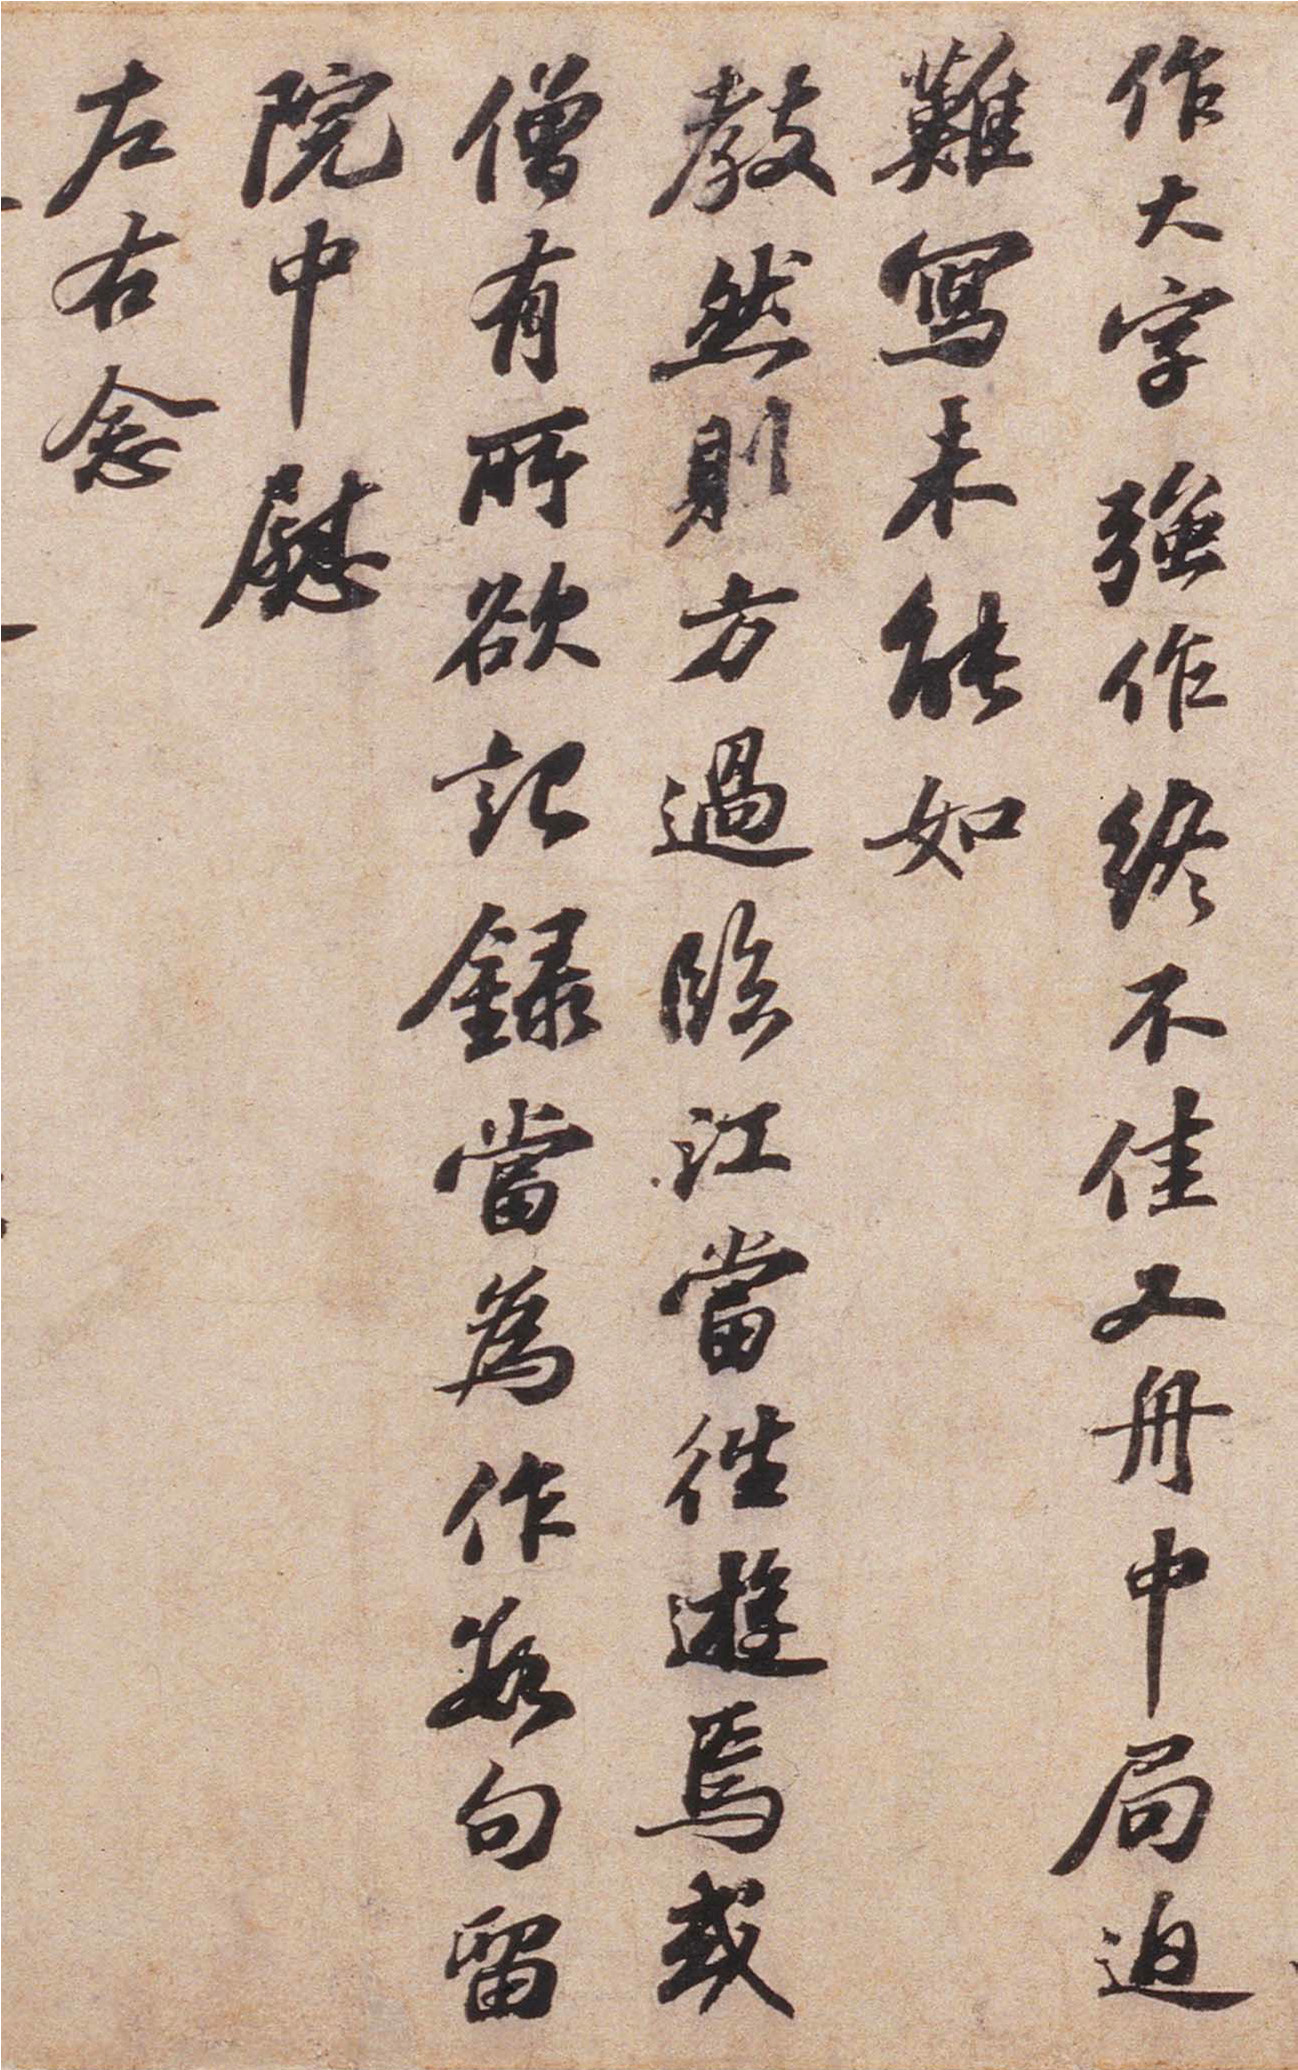 作大字強作終不佳又舟中局迫
難寫未能如
教然則方過臨江當往遊焉或
僧有所欲記録當為作數句留
院中慰
左右念